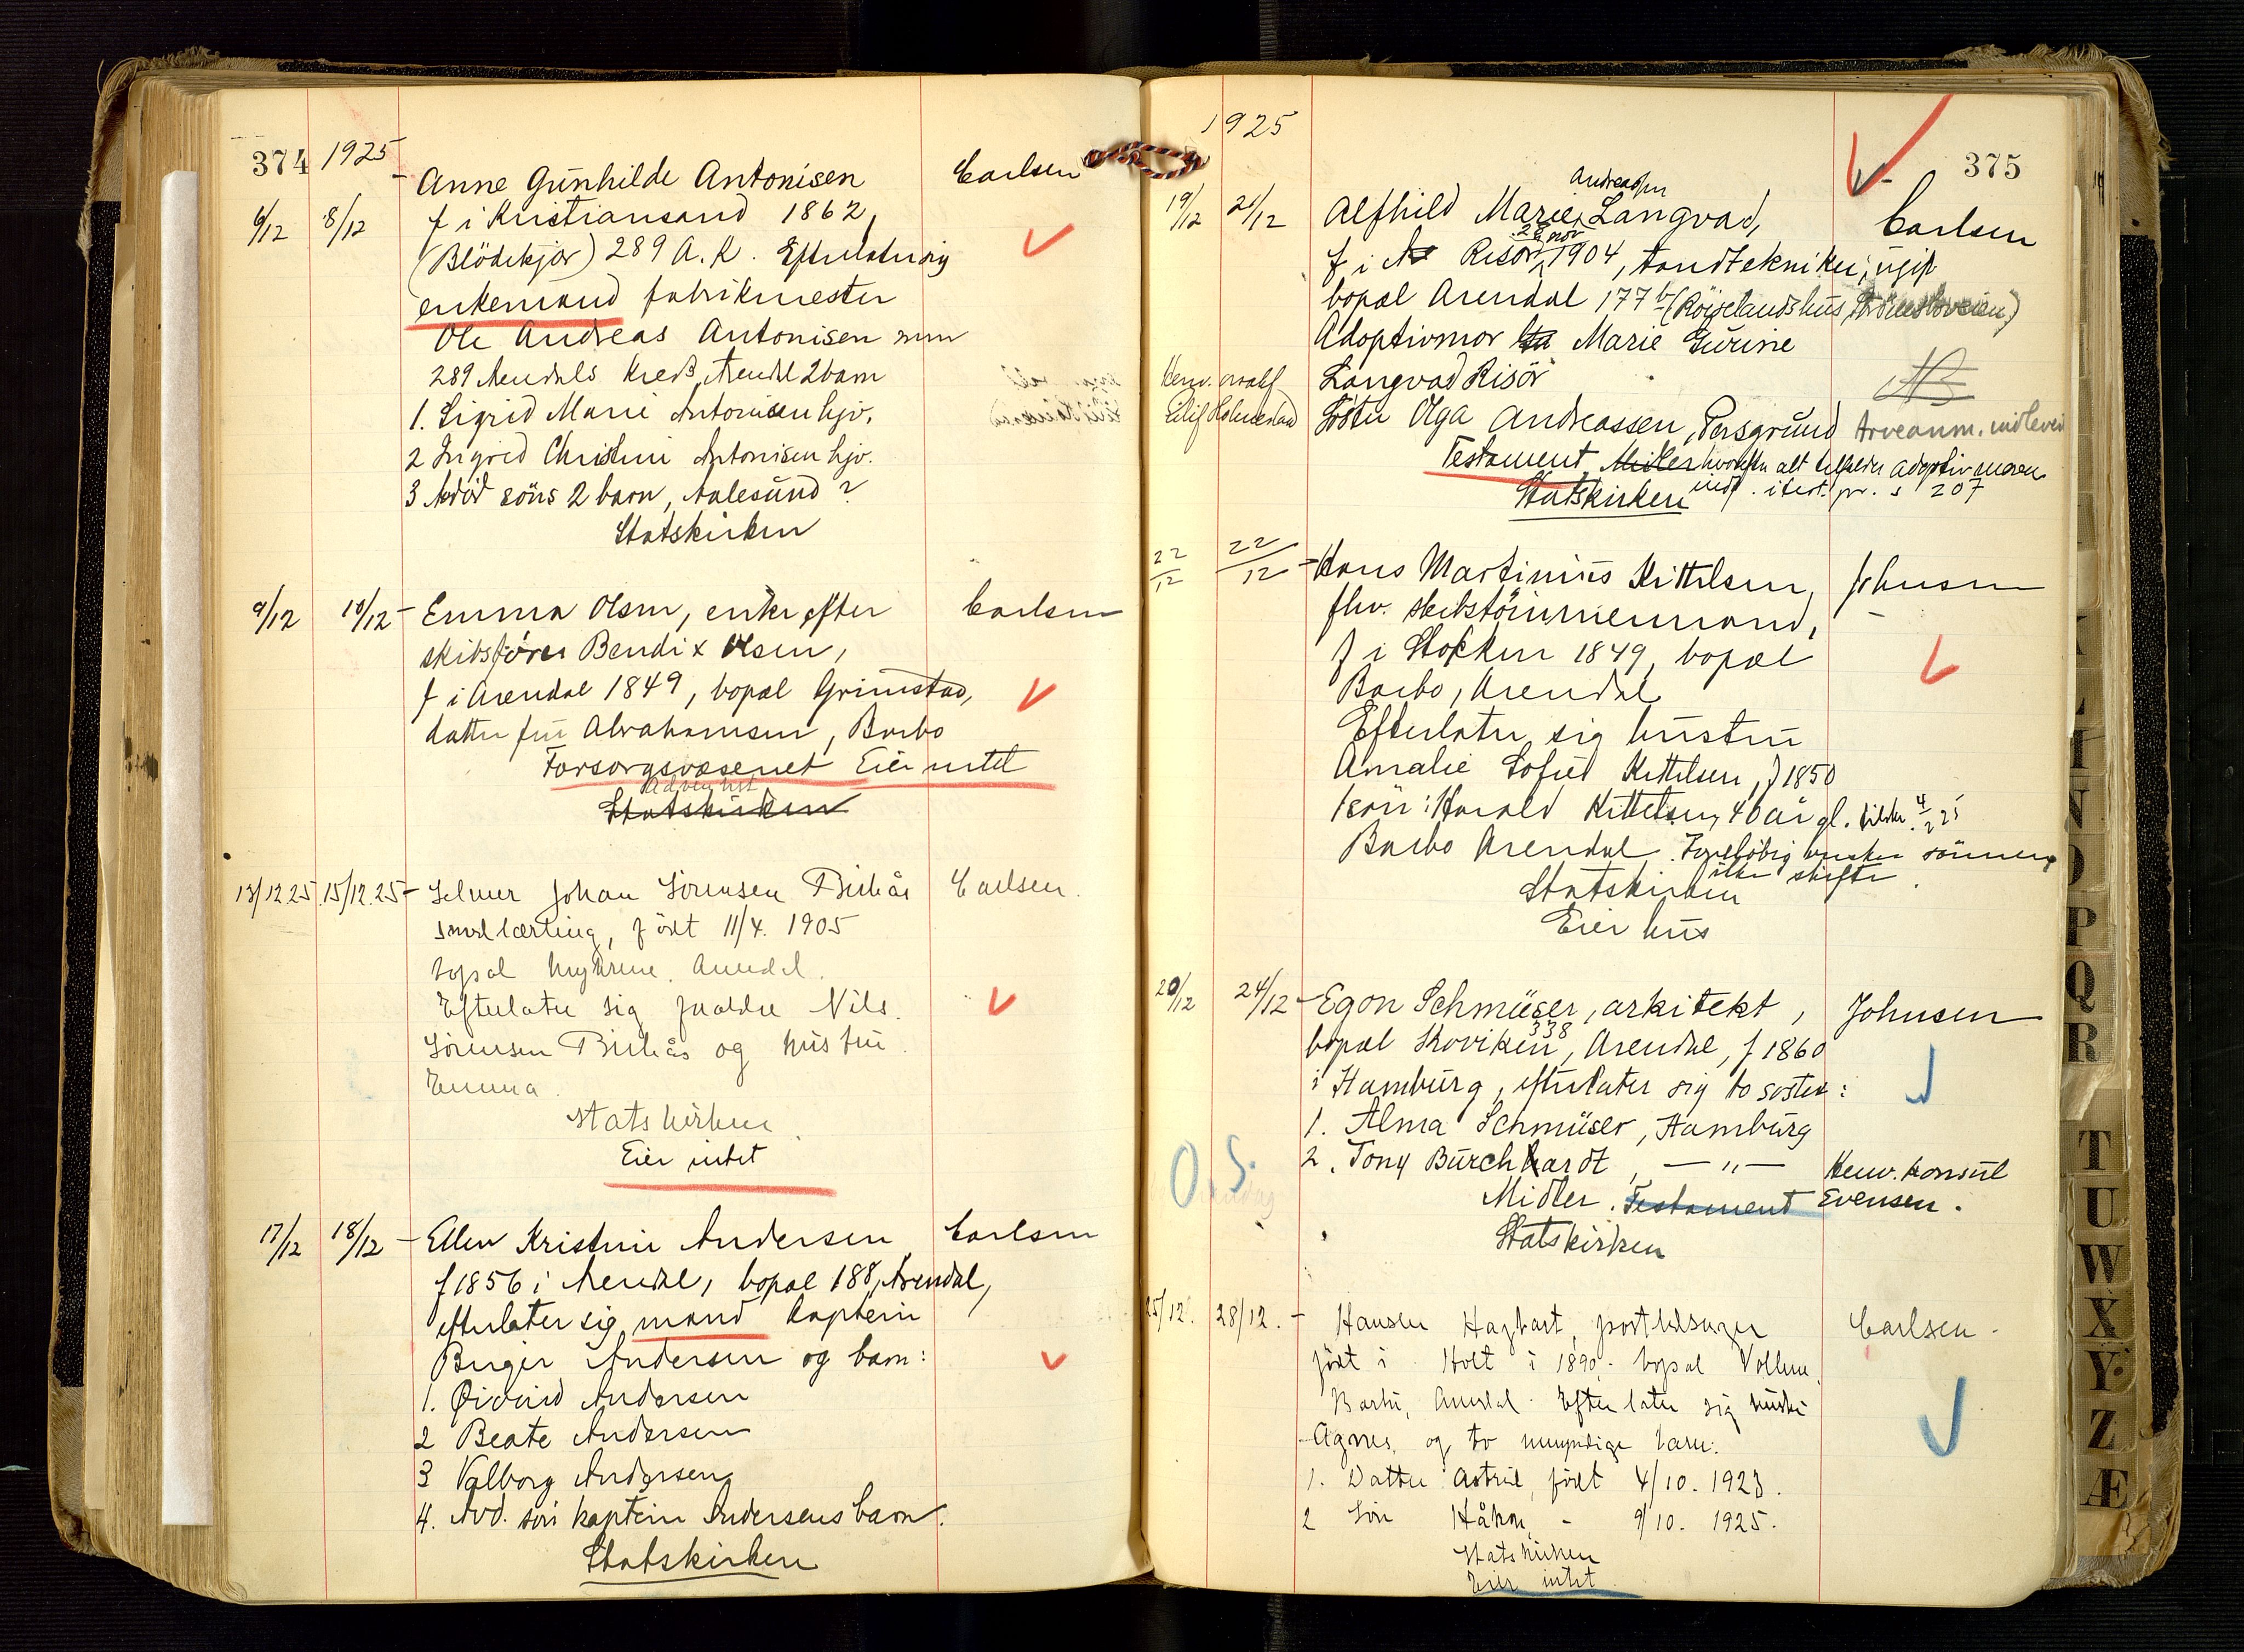 374 1925
Anne Gunhilde Antonisen Carlsen
6/12 8/12 f i Kristiansand 1862,
(Blödekjær) 289 A. K. Efterlater sig
enkemand fabrikmester
Ole Andreas Antonisen
289 Arendals Kreds, Arendal 2 barn
1. Sigrid Marie Antonisen hjv.
2 Ingrid Christine Antonisen hjv.
3 Avdöd söns 2 barn, Aalesund?
Statskirken
9/12 10/12 - Emma Olsen, enke efter Carlsen
skibsförer Bendix Olsen,
f i Arendal 1849, bopæl Grimstad,
datter fru Abrahamsen, Barbo
Forsorgsvæsenet Eier intet
Adventist
Statskirken
13/12 25 15/12.25 - Selmer Johan Sörensen Birkås Carlsen.
smedlærling, född 11/4. 1905
bopæl Myrene. Arendal.
Efterlater sig foreldre Nils.
Sörensen Birkås og hustru
Emma.
Statskirken.
Eier intet
17/12 18/12 - Ellen Kristine Andersen Carlsen
f 1856 i Arendal, bopæl 188, Arendal,
efterlater sig mand kaptein
Birger Andersen og barn:
1. Øivind Andersen
2 Beate Andersen
3 Valborg Andersen
4. Avd. sön kaptein Andersens barn.
Statskirken
1925
375
Andreassen
19/12 21/12 Alfhild Marie Langvad, Carlsen
28 nov
f. i Risör 1904, tandtekniker, ugift
bopæl Arendal 177 b (Röiselandshus,
Adoptivmor Marie Gurine
Langvad Risör
NB
Eilif Holmestad Söster Olga Andreassen, Porsgrund Arveanm. indlevert
Testament Midler hvorefter alt tilfalder adoptivmoren
Statskirken indf. i test. pr. s 207
22/12 22/12 - Hans Martinius Kittelsen, Johnsen
fhv. skibstömmermand,
f i Stokken 1849, bopæl
Barbo, Arendal
Efterlater sig hustru
Amalie Sofie Kittelsen, f 1850
1 sön: Harald Kittelsen, 40 år gl.
Barbo Arendal. Foreløbig ønsker sönnen
ikke skifte.
Statskirken
Eier hus
20/12 24/12 - Egon Schmüser, arkitekt, Johnsen
338
bopæl Skoviken, Arendal, f 1860
i Hamburg, efterlater sig to søstre:
1. Alma Schmüser, Hamburg
O. S. 2. Tony Burchhardt, — " — Henv. konsul
Midler. Testament Evensen.
Statskirken
25/12. 28/12. - Hansen Hagbart, postbetjent Carlsen.
födt i Holt i 1890. bopæl Vollene.
Barbu, Arendal. Efterlater sig hustru
Agnes, og to umyndige barn:
1. Datter Astrid, födt 4/10. 1923.
2 Sön Håkon, - 9/10. 1925.
Statskirken
Eier intet
K L N O P Q R T U W X Y Z Æ